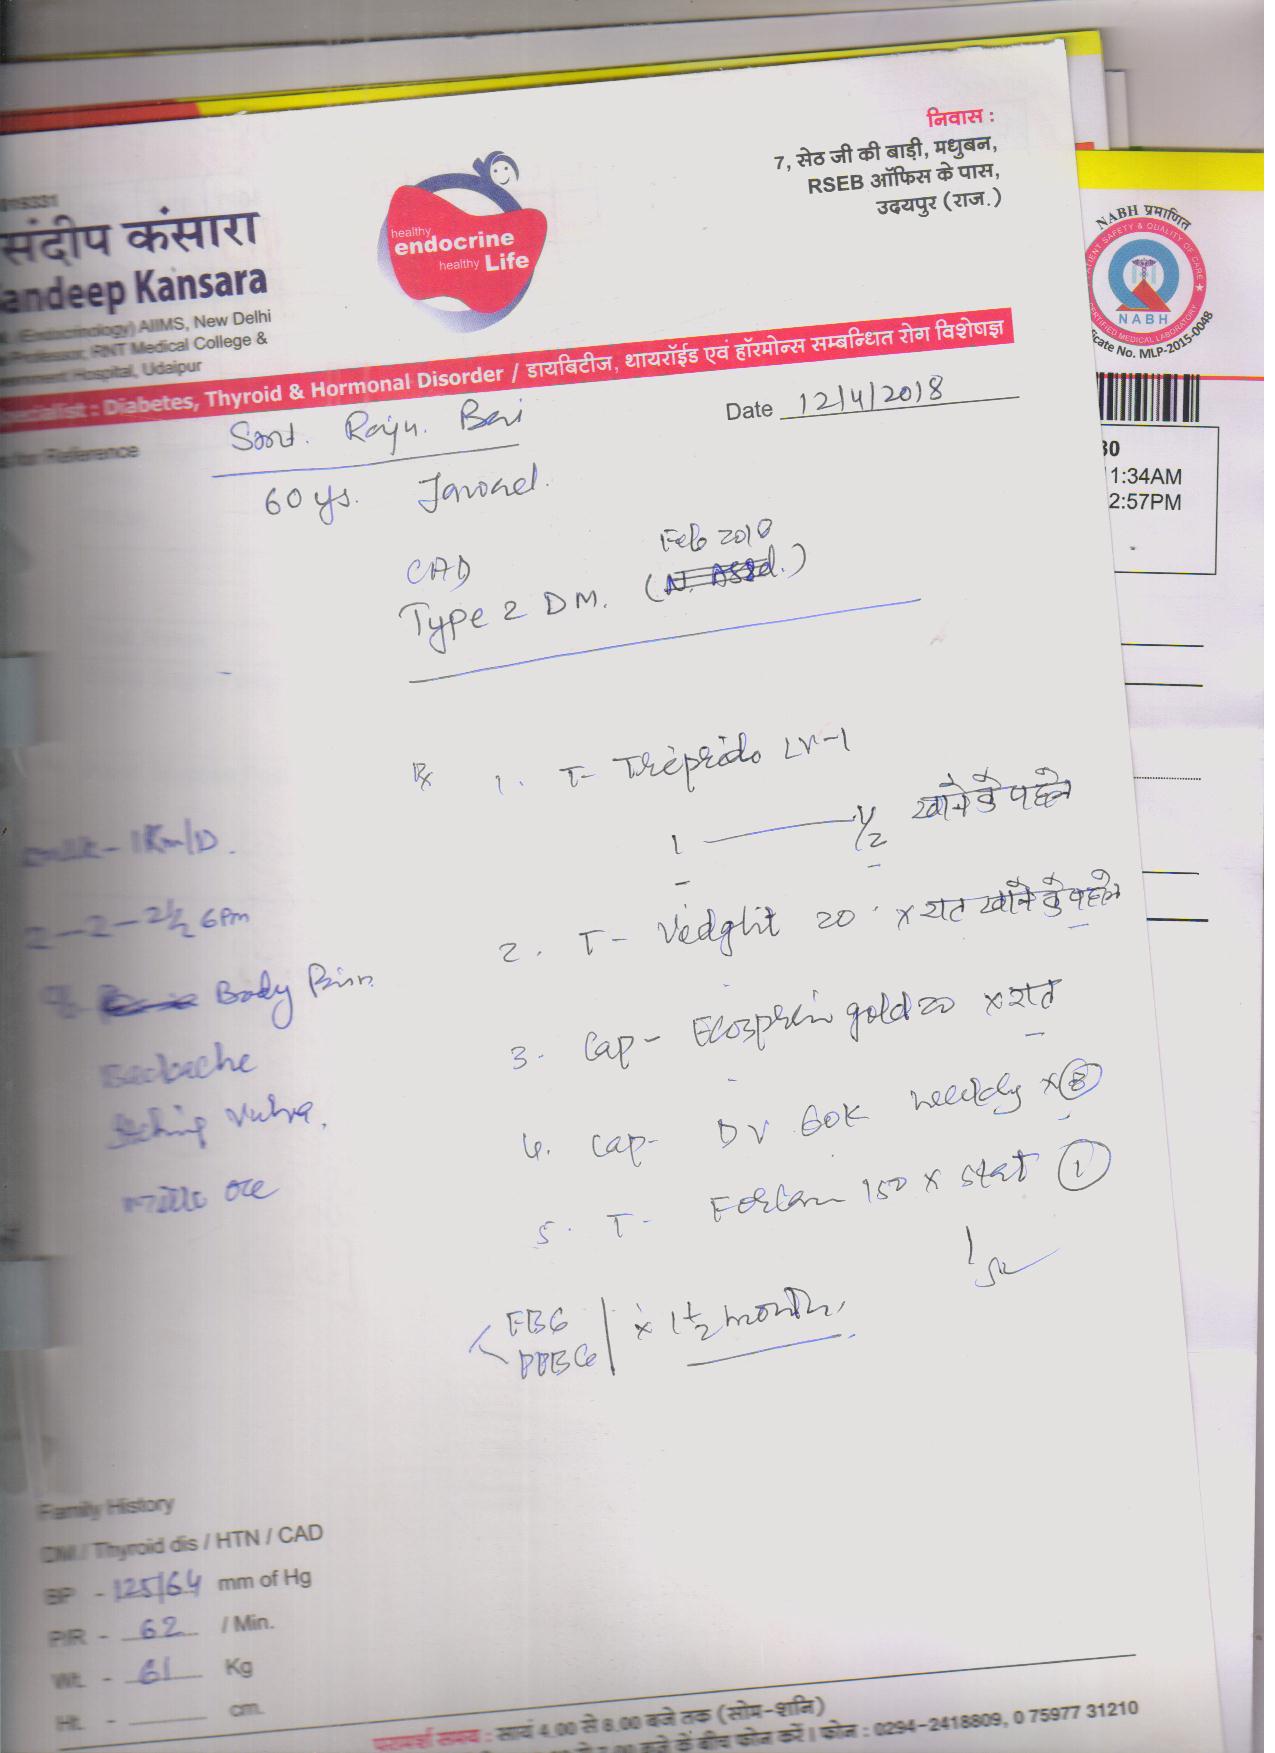 संदीप कंसारा
andeep Kansara
(Endocrinology) AIIMS, New Delhi
RNT Medical College &
Hospital, Udaipur
healthy
endocrine
healthy Life
निवास :
7, सेठ जी की बाड़ी, मधुबन,
RSEB ऑफिस के पास,
उदयपुर (राज.)
NABH प्रमाणित
NABH
cate No. MLP-2015-0048
ecialist : Diabetes, Thyroid & Hormonal Disorder / डायबिटीज, थायरॉईड एवं हॉरमोन्स सम्बन्धित रोग विशेषज्ञ
Reference
Smt. Raju Bai
Date 12/4/2018
60 ys. Jawad
30
1:34AM
2:57PM
CAD
Feb 2018
Type 2 DM.
Rx 1. T- Triprido LV-1
1 — 1/2 खाने के पहले
- 1Km/D.
2. T- Vedglit 20 x रात खाने के पहले
2-2-2½ 6pm
Body Pain
3. Cap- Ecosprin gold 20 x रात
Backache
4. Cap- DV 60K weekly x 8
Itching vulva.
5. T- Forcan 150 x stat 1
FBG
PPBG
x 1½ month.
Family History
DM / Thyroid dis / HTN / CAD
BP - 125/64 mm of Hg
P/R - 62 / Min.
Wt. - 61 Kg
Ht. - cm.
परामर्श समय : सायं 4.00 से 8.00 बजे तक (सोम-शनि)
बजे के बीच फोन करें। फोन : 0294-2418809, 0 75977 31210